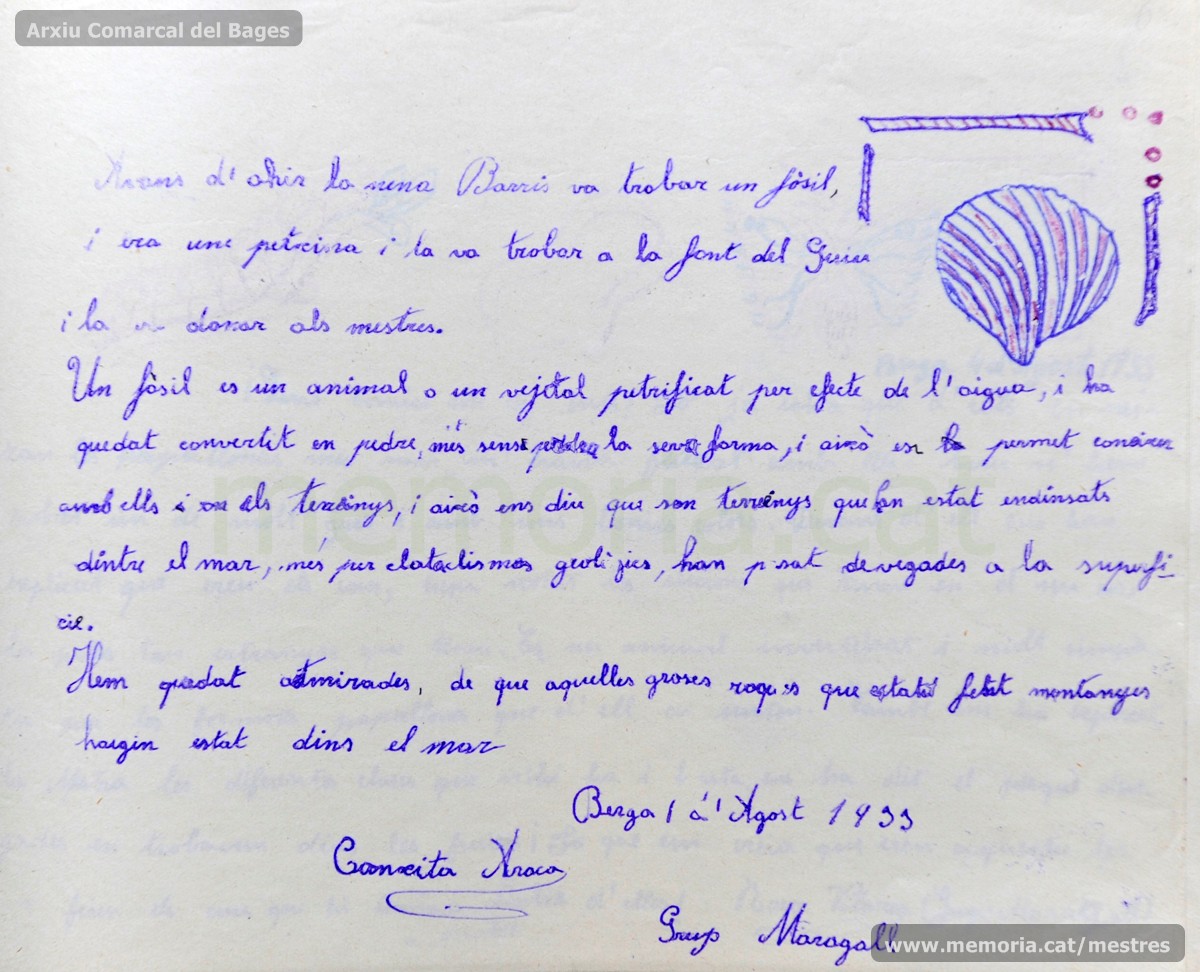 Arxiu Comarcal del Bages
Avans d'ahir la nena Barris va trobar un fòsil,
i era una petxina i la va trobar a la font del Guiu
i la va donar als mestres.
Un fòsil es un animal o un vejetal petrificat per efecte de l'aigua, i ha
quedat convertit en pedre, més sense perdre la seva forma, i això en permet coneixer
amb ells els terrenys, i això ens diu que son terrenys que han estat endinsats
dintre el mar, més per clataclismos geològics, han posat devegades a la superfi-
cie.
Hem quedat admirades, de que aquelles groses roques que montanyes
haigin estat dins el mar
Berga 1 d'Agost 1933
Conxita Aroca
Grup Maragall
memoria.cat
www.memoria.cat/mestres